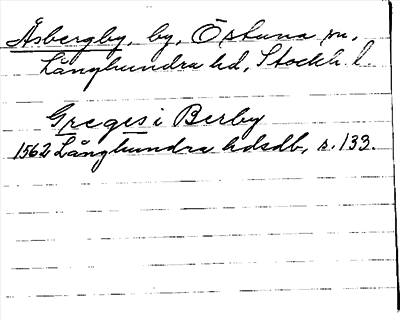 Åsbergby, by, Östuna sn,
Långhundra hd, Stockh. l.
Greges i Berby
1562 Långhundra hdsdb, s. 132.